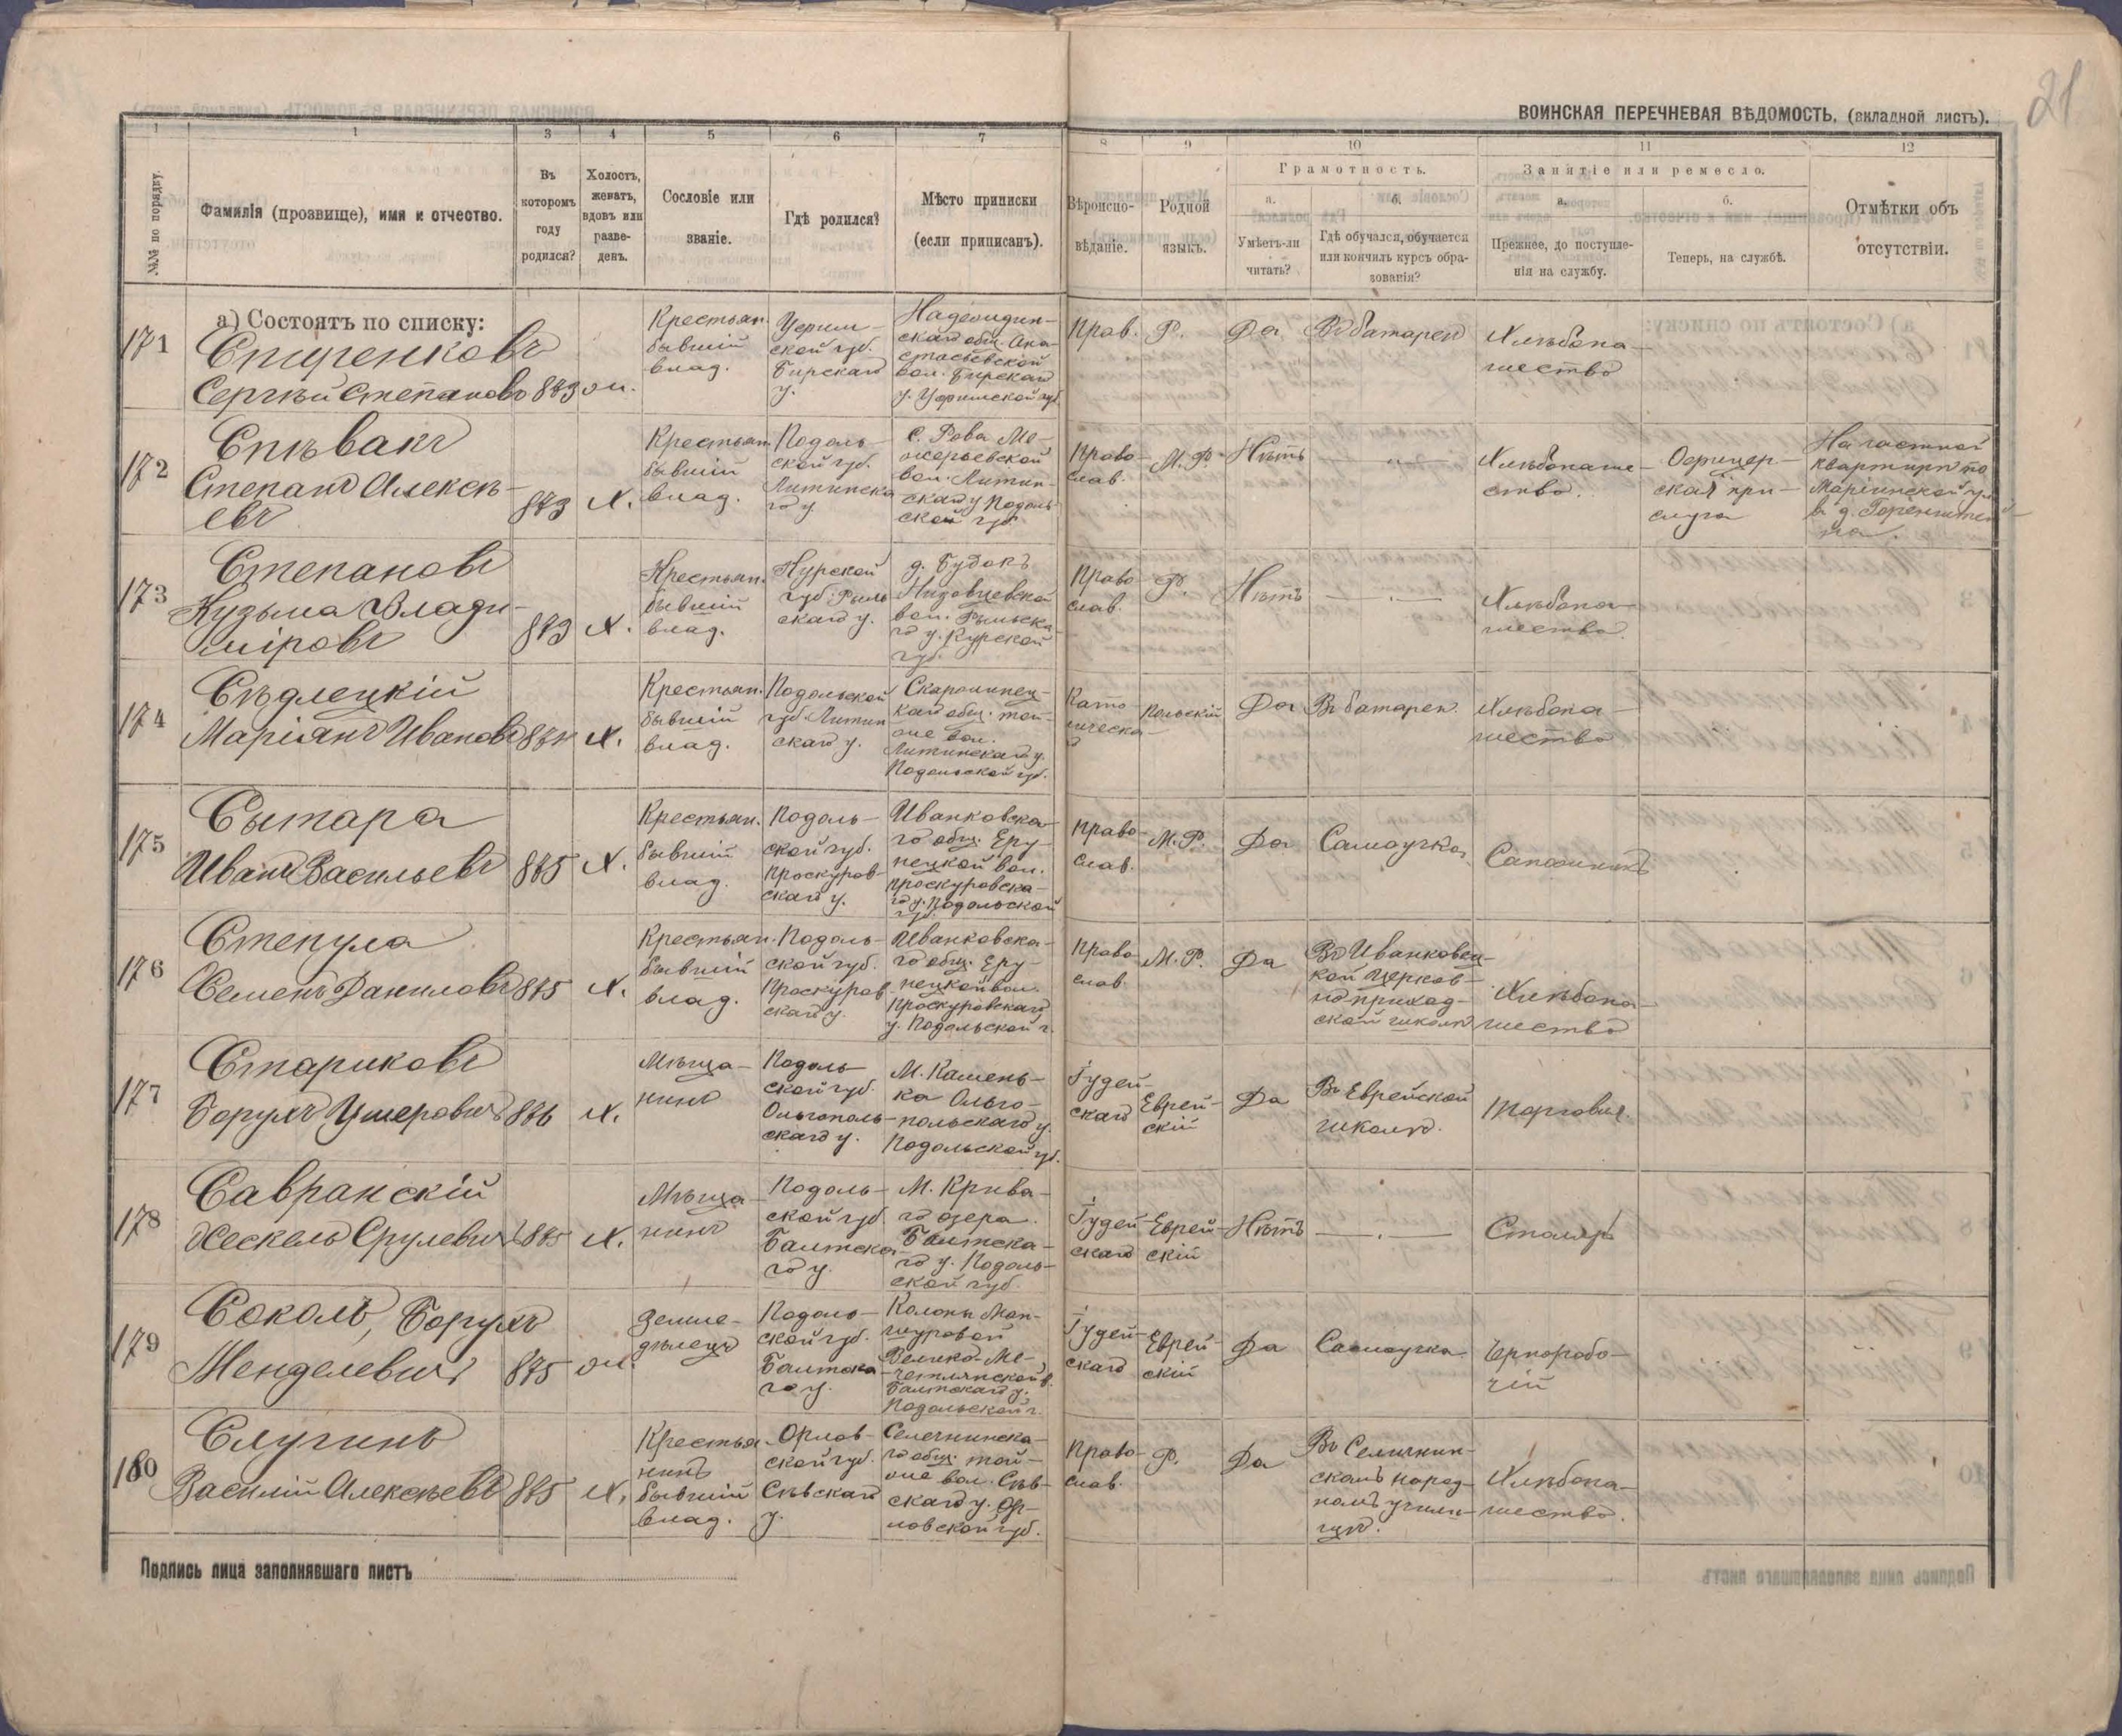 21
ВОИНСКАЯ ПЕРЕЧНЕВАЯ ВѢДОМОСТЬ, (вкладной листъ).
1 1 3 4 5 6 7 8 9 10 11 12
№№ по порядку.
Фамилія (прозвище), имя и отчество.
Въ которомъ году родился?
Холостъ, женатъ, вдовъ или разведенъ.
Сословіе или званіе.
Гдѣ родился?
Мѣсто приписки (если приписанъ).
Вѣроисповѣданіе.
Родной языкъ.
Грамотность.
а. Умѣетъ-ли читать?
б. Гдѣ обучался, обучается или кончилъ курсъ образованія?
Занятіе или ремесло.
а. Прежнее, до поступленія на службу.
б. Теперь, на службѣ.
Отмѣтки объ отсутствіи.
а) Состоятъ по списку:
171
Сергѣй Степановъ 873 ж.
Крестьян. бывшій влад.
Уфимской губ. Бирскаго у.
Прав.
Р.
Да
Въ батареи
Хлѣбопашество
172
Спѣвакъ
Степанъ Алексѣевъ
873 Х.
Крестьян. бывшій влад.
Подольской губ. Литинскаго у.
Православ.
М. Р.
Нѣтъ
Хлѣбопашество.
Офицерская прислуга
На частной квартирѣ по Маріинской ул.
173
Степановъ
Кузьма Владиміровъ
873 Х.
Крестьян. бывшій влад.
Курской губ. Рыльскаго у.
Православ.
Р.
Нѣтъ
Хлѣбопашество.
174
Сѣдлецкій
Маріянъ Ивановъ
Х.
Крестьян. бывшій влад.
Подольской губ. Литинскаго у.
Литинскаго у. Подольской губ.
Католическа
Польскій
Да
Въ батареи.
Хлѣбопашество
175
Сытара
Иванъ Васильевъ
875 Х.
Крестьян. бывшій влад.
Подольской губ. Проскуровскаго у.
Иванковскаго общ.
Проскуровскаго у. Подольской губ.
Православ.
М. Р.
Да
Самоучка
Сапожникъ
176
Степула
Семенъ Даниловъ 875 Х.
Крестьян. бывшій влад.
Подольской губ. Проскуровскаго у.
Иванковскаго общ.
Проскуровскаго у. Подольской г.
Православ.
М. Р.
Да
Въ Иванковецкой церковно приходской школѣ
Хлѣбопашество
177
Стариковъ
Борухъ Умеровичъ 876 Х.
Мѣщанинъ
Подольской губ. Ольгопольскаго у.
М. Каменька Ольгопольскаго у. Подольской губ.
Іудейскаго
Еврейскій
Да
Въ Еврейской школѣ.
Торговля.
178
Савранскій
Хескель Срулевичъ 875 Х.
Мѣщанинъ
Подольской губ. Балтскаго у.
М. Криваго озера. Балтскаго у. Подольской губ.
Іудейскаго
Еврейскій
Нѣтъ
Столяръ
179
Соколъ, Борухъ
Менделевичъ 875 ж.
Земледѣлецъ
Подольской губ. Балтскаго у.
Балтскаго у. Подольской г.
Іудейскаго
Еврейскій
Да
Самоучка.
Чернорабочій
180
Слугинъ
Василій Алексѣевъ 875 Х.
Крестьянинъ бывшій влад.
Орловской губ. Сѣвскаго у.
Сѣвскаго у. Орловской губ.
Православ.
Р.
Да
Хлѣбопашество.
Подпись лица заполнявшаго листъ